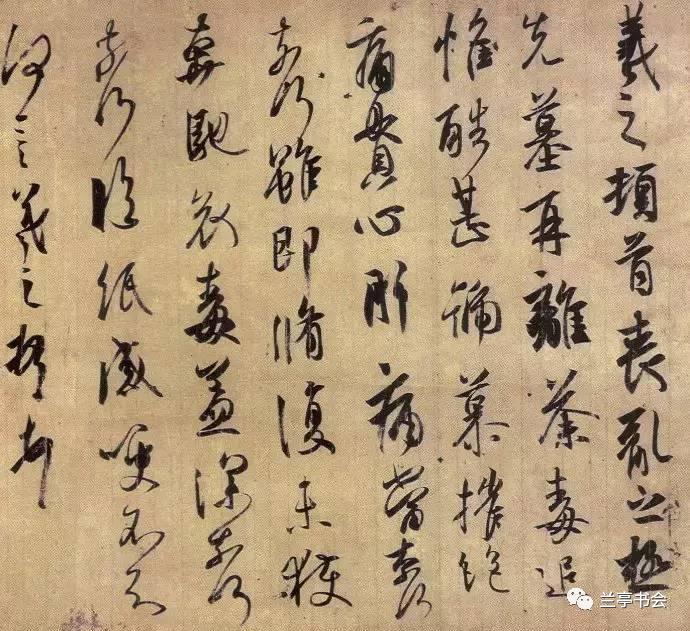 羲之頓首喪亂之極
先墓再離荼毒追
惟酷甚號慕摧絕
痛貫心肝痛當奈何
奈何雖即脩復未獲
奔馳哀毒益深奈何
奈何臨紙感哽不知
何言羲之頓首頓首
兰亭书会